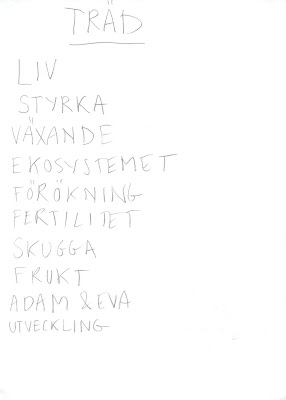 TRÄD
LIV
STYRKA
VÄXANDE
EKOSYSTEMET
FÖRÖKNING
FERTILITET
SKUGGA
FRUKT
ADAM & EVA
UTVECKLING